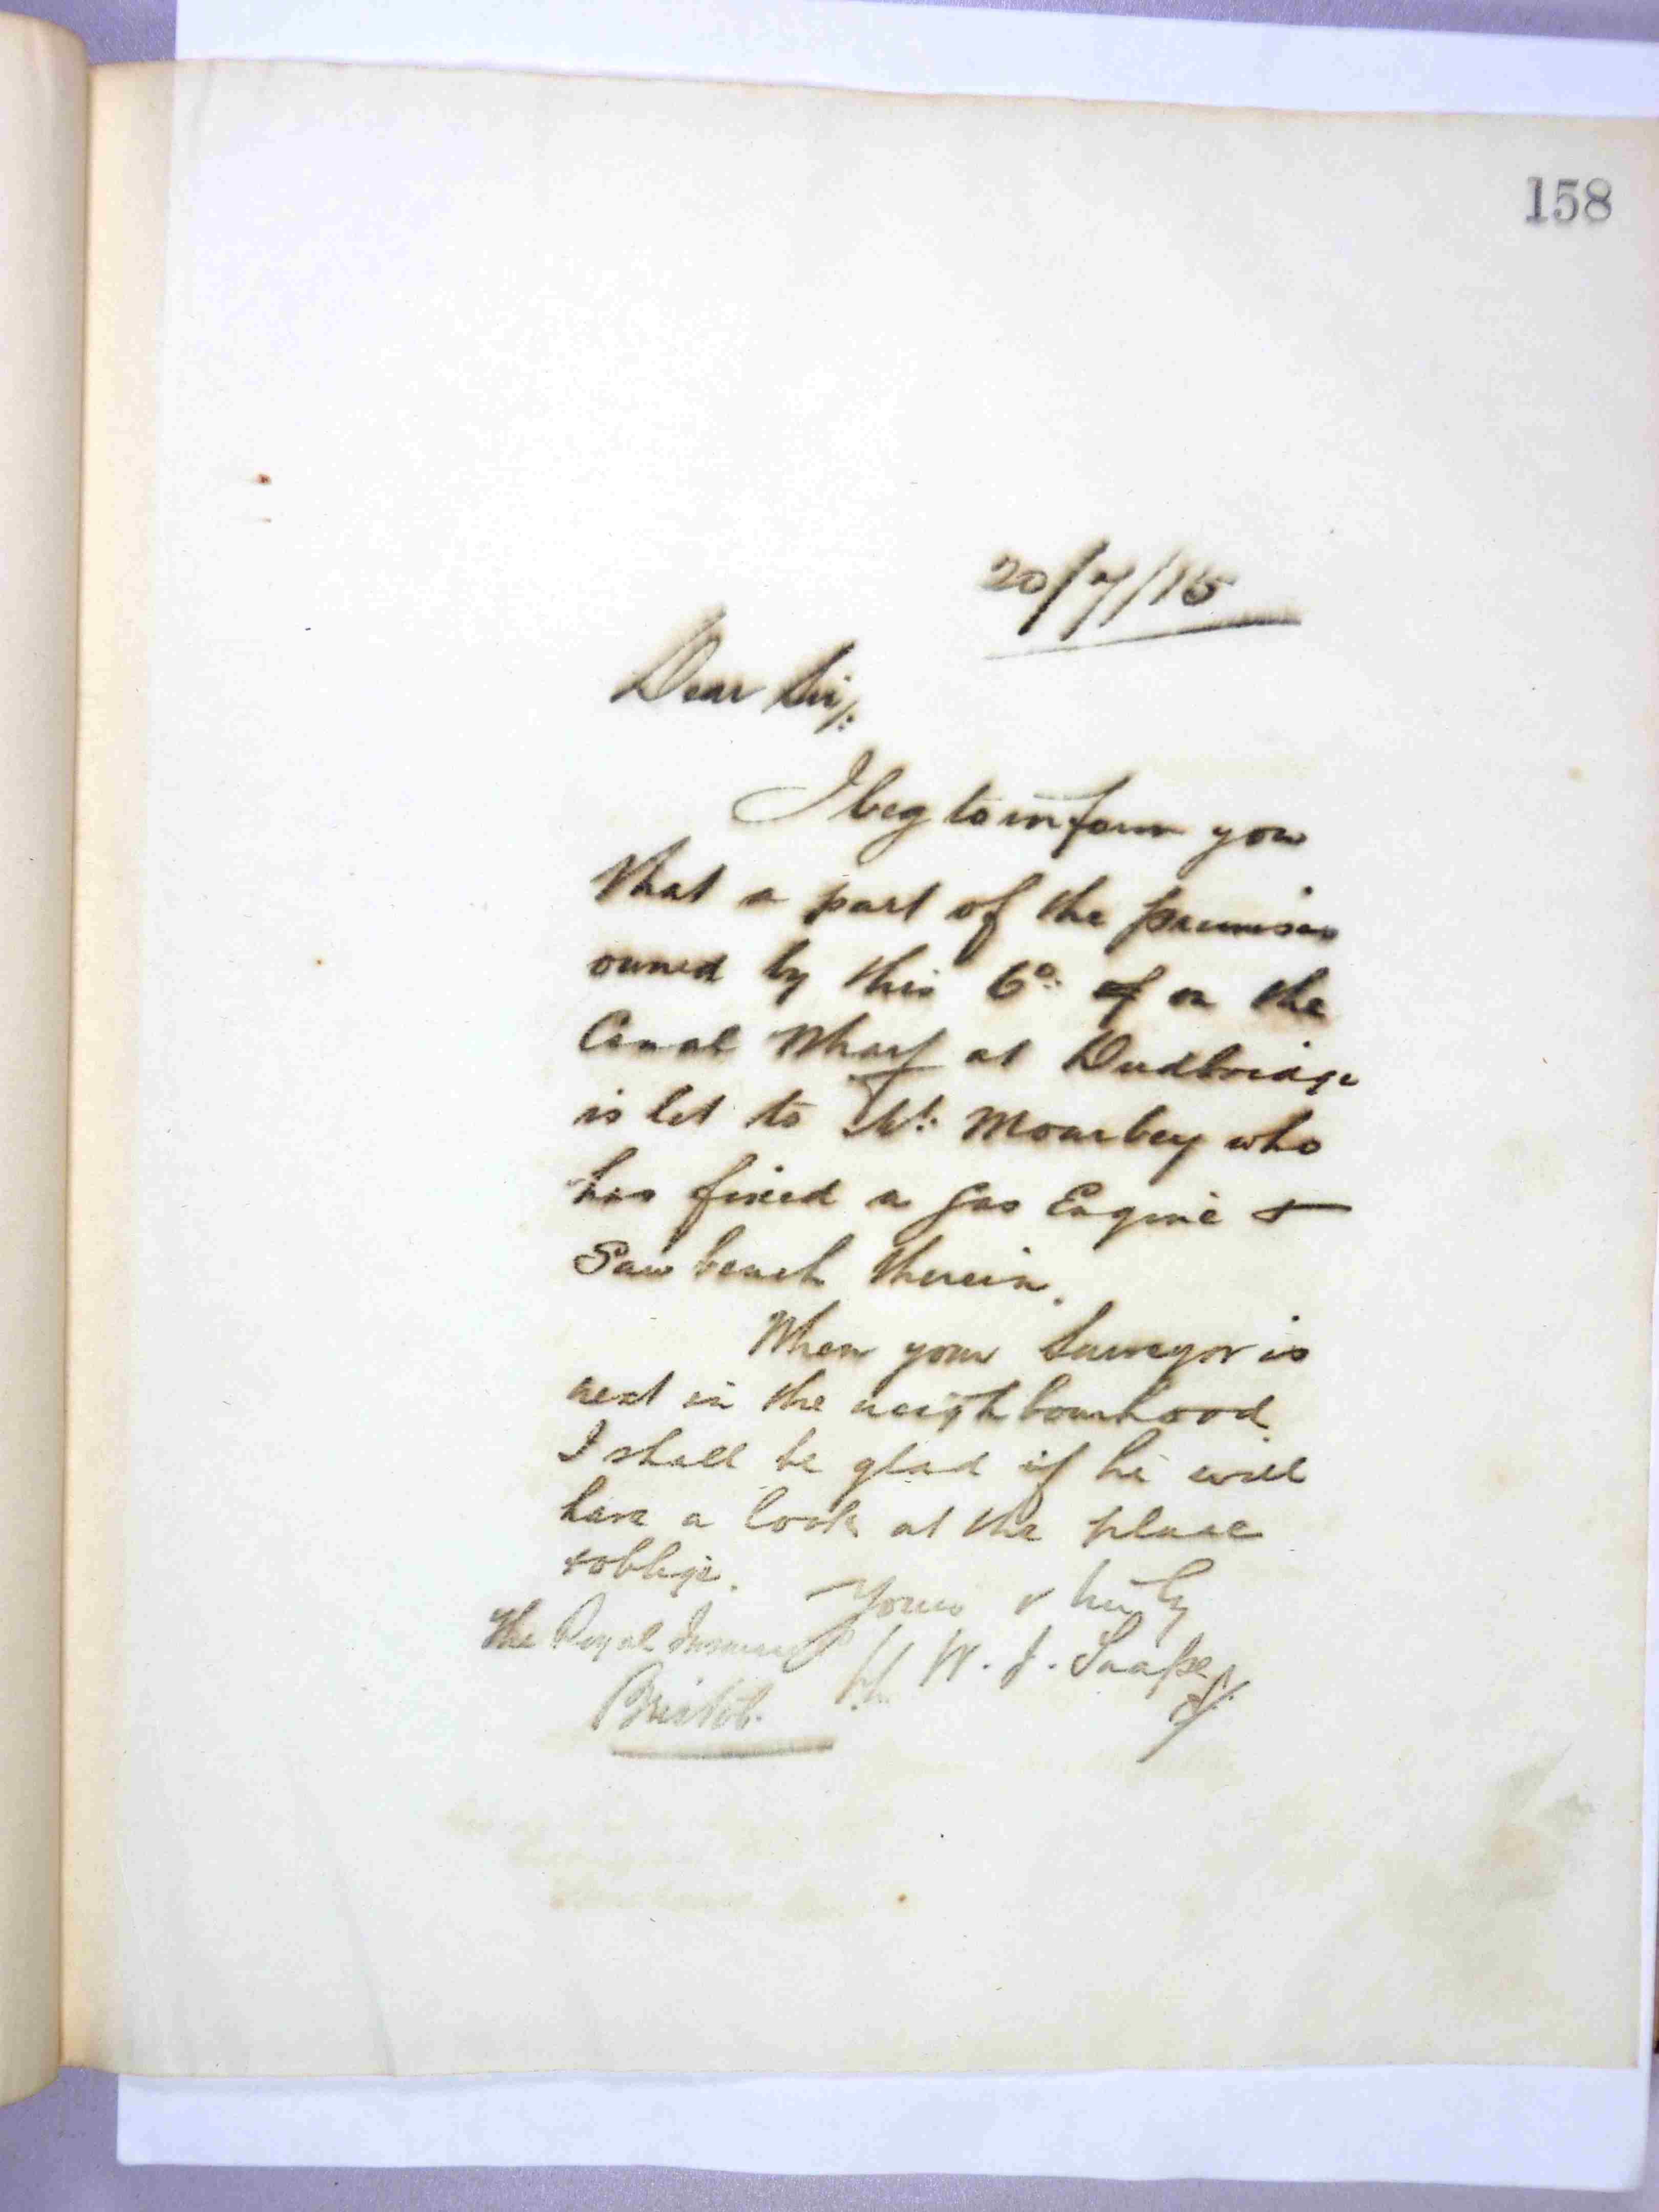 158
20/7/15
Dear Sir/:
I beg to inform you
that a part of the premises
owned by this Co. of on the
Canal Wharf at Dudbridge
is let to Mr. Moarbey who
has fixed a Gas Engine &
Saw bench therein.
When your Surveyor is
next in the neighbourhood
I shall be glad if he will
have a look at the place
& oblige. Yours truly
The Royal Insurance W. J. Snape
Bristol.